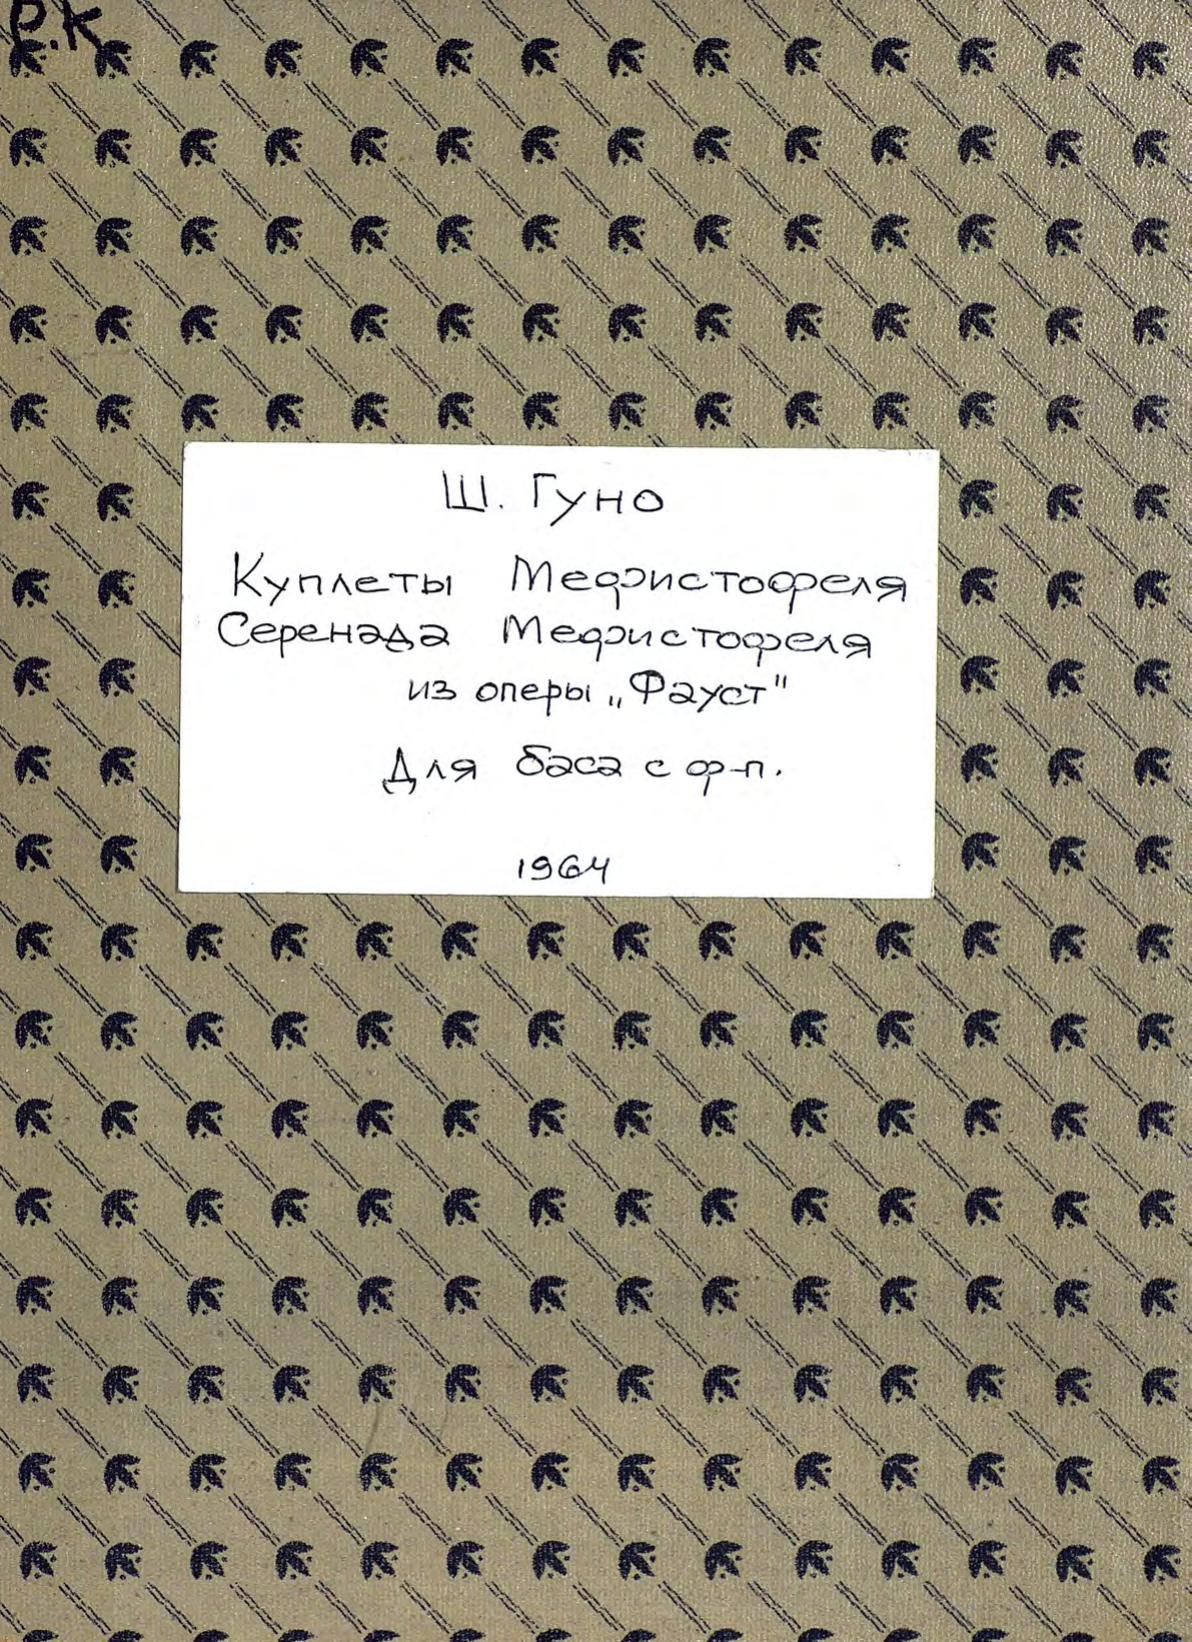 Р.К
Ш. Гуно
Куплеты Мефистофеля
Серенада Мефистофеля
из оперы „Фауст"
Для баса с ф-п.
1964